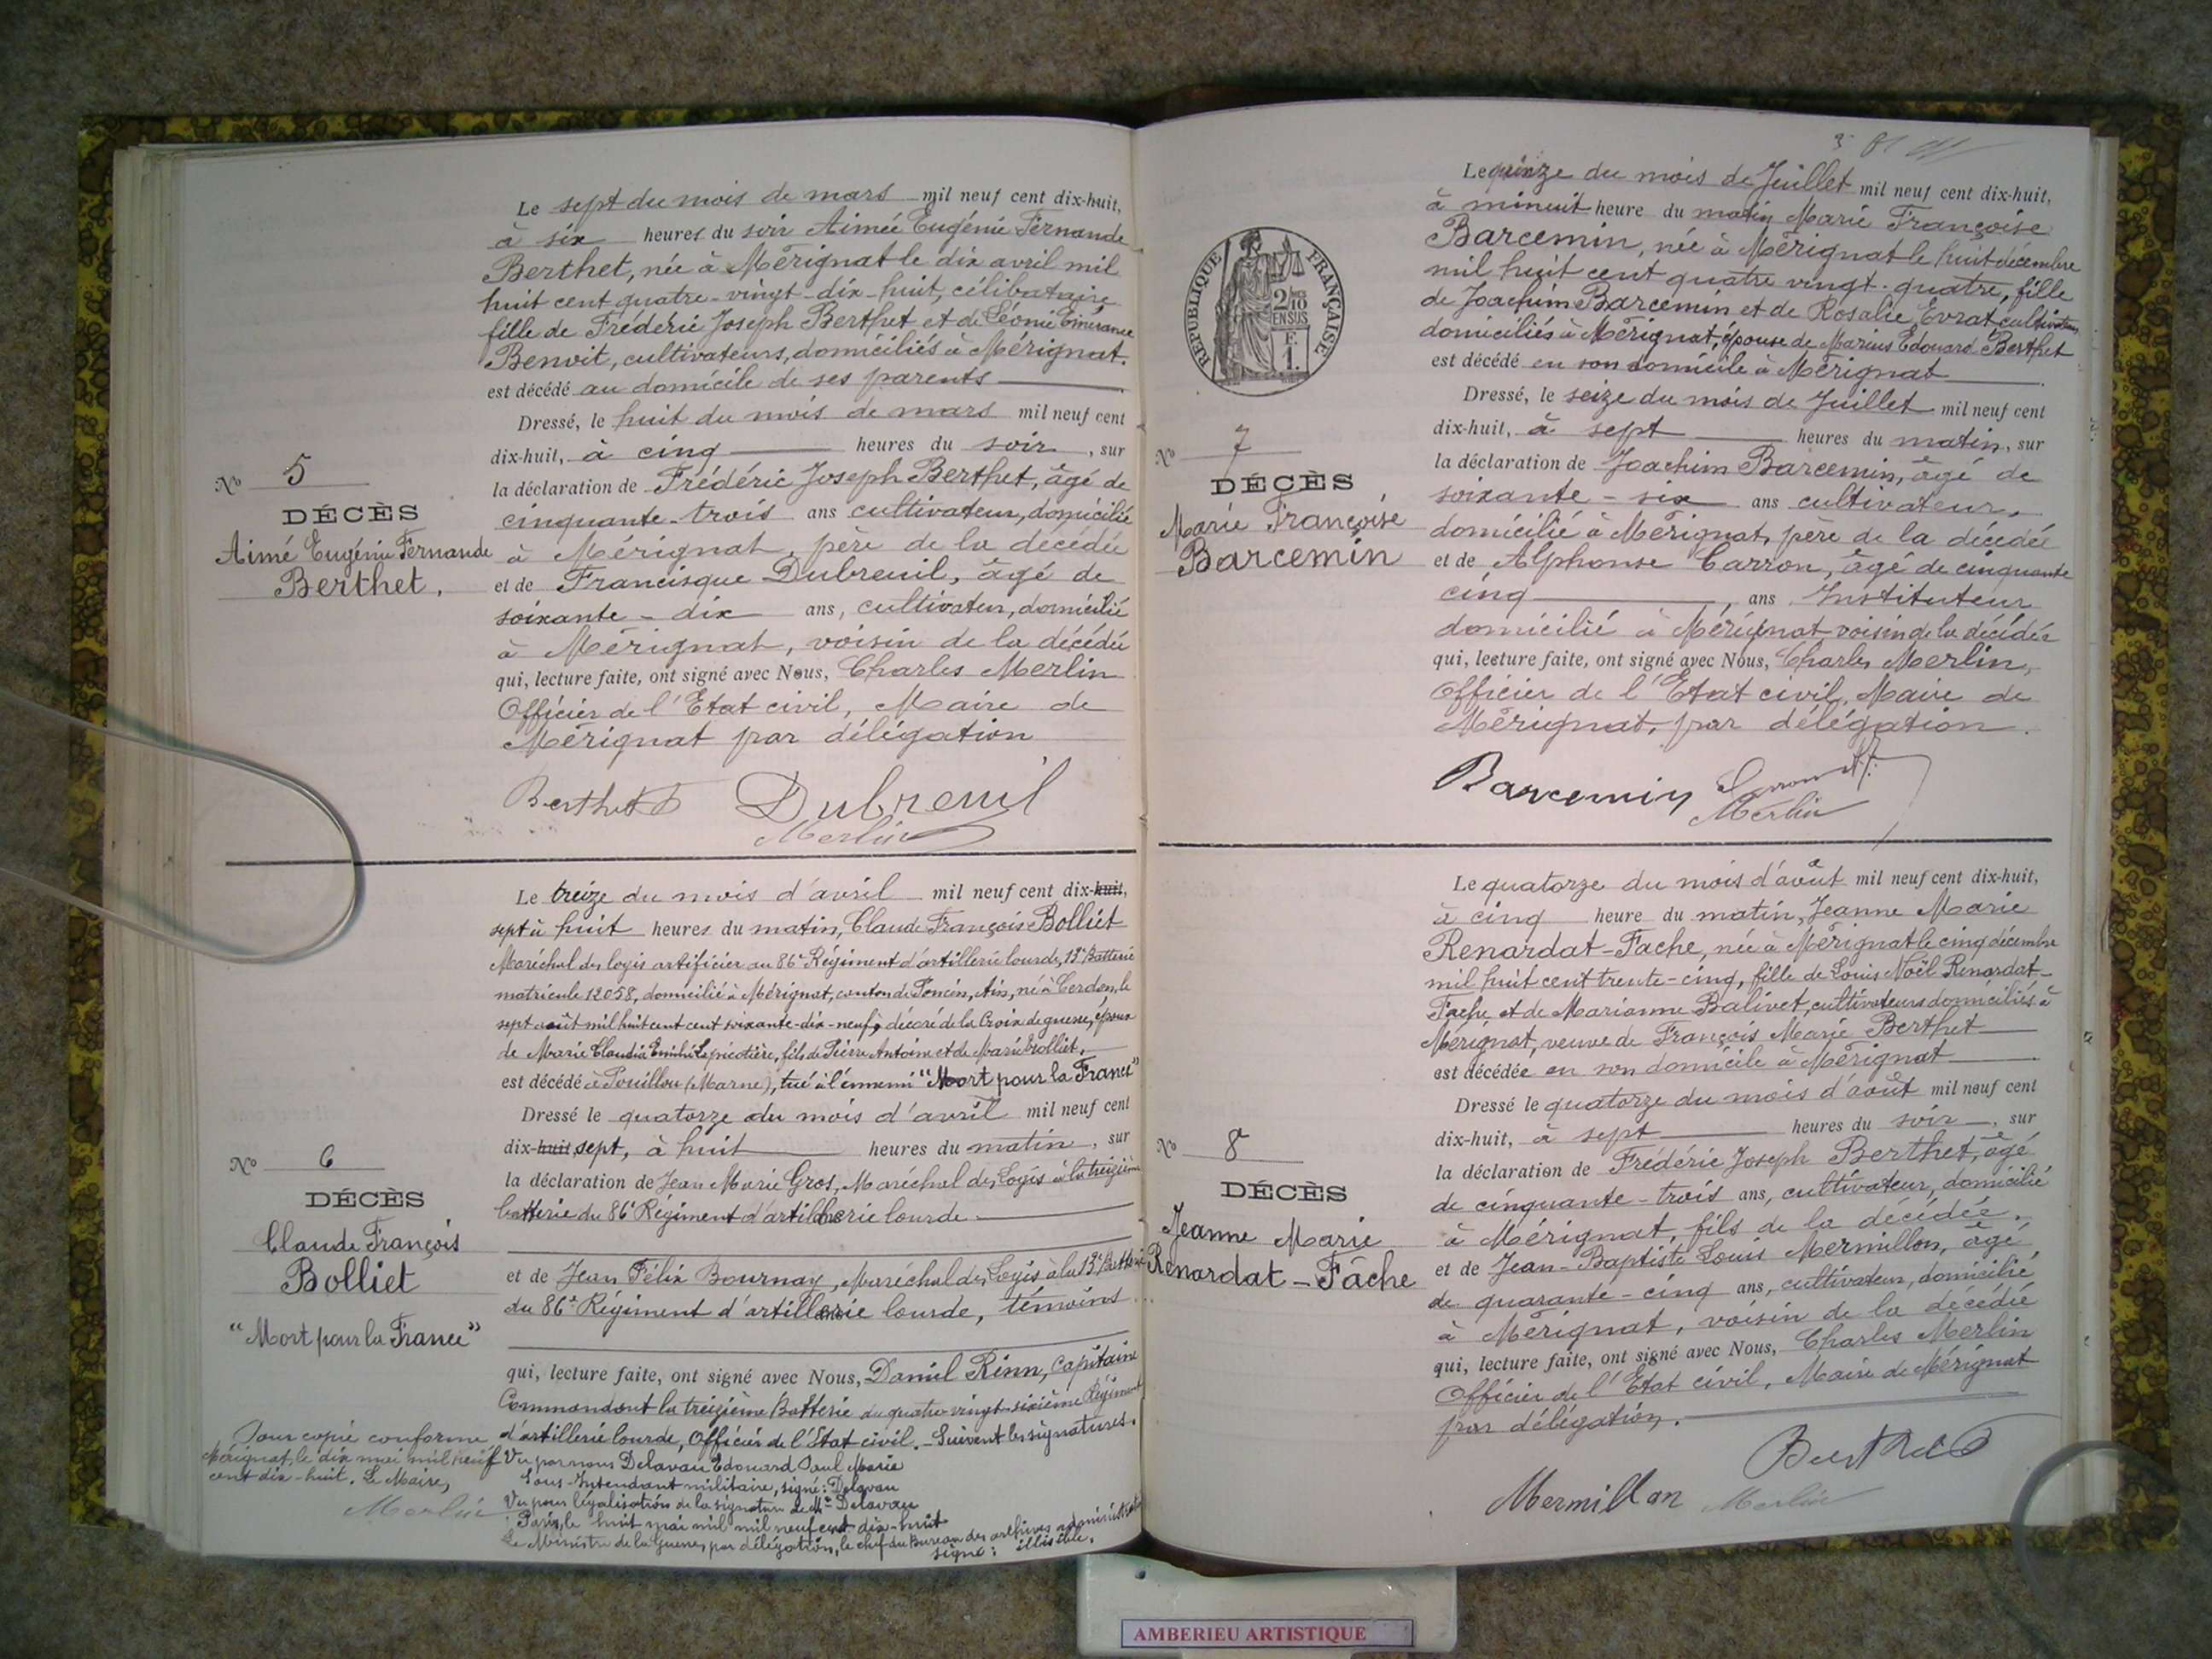 Le sept du mois de mars mil neuf cent dix-huit,
à six heures du soir Aimée Eugénie Fernande
Berthet, née à Mérignat le dix avril mil
huit cent quatre-vingt-dix-huit, célibataire
fille de Fréderic Joseph Berthet et de Léonie Emérance
Benoit, cultivateurs, domiciliés à Mérignat.
est décédé au domicile de ses parents
Dressé, le huit du mois de mars mil neuf cent
dix-huit, à cinq heures du soir, sur
la déclaration de Frédéric Joseph Berthet, âgé de
cinquante-trois ans cultivateur, domicilié
à Mérignat, père de la décédée
et de Francisque Dubreuil, âgé de
soixante-dix ans, cultivateur, domicilié
à Mérignat, voisin de la décédée
qui, lecture faite, ont signé avec Nous, Charles Merlin
Officier de l'Etat civil, Maire de
Mérignat par délégation
Berthet Dubreuil
Merlin
No 5
DÉCÈS
Aimé Eugénie Fernande
Berthet.
Le treize du mois d'avril mil neuf cent dix-huit,
sept à huit heures du matin, Claude François Bolliet
Maréchal des logis artificier au 86e Régiment d'artillerie lourde, 13e Batterie
matricule 12058, domicilié à Mérignat, canton de Poncin, Ain, né à Cerdon, le
sept août mil huit cent cent soixante-dix-neuf, décoré de la Croix de guerre, époux
de Marie Claudia Emilie Lepicotière, fils de Pierre Antoine et de Marie
est décédé à Pouillon (Marne), tué à l'ennemi "Mort pour la France"
Dressé le quatorze du mois d'avril mil neuf cent
dix-huit sept, à huit heures du matin, sur
la déclaration de Jean Marie Gros, Maréchal des Logis à la treizième
batterie du 86e Régiment d'artillerie lourde.
et de Jean Félix Bournay, Maréchal des Logis à la 13e Batterie
du 86e Régiment d'artillerie lourde, témoins
qui, lecture faite, ont signé avec Nous, Daniel Rinn, Capitaine
Commandant la treizième Batterie du quatre vingt-sixième Régiment
d'artillerie lourde, Officier de l'Etat civil. - Suivent les signatures.
Vu par nous Delavau Edouard Paul Marie
Sous-Intendant militaire, signé: Delavau
Vu pour légalisation de la signature de Mr Delavau
Paris, le huit mai mil mil neuf cent dix-huit
Le Ministre de la Guerre, par délégation, le chef du Bureau des archives administratives
signé: illisible.
No 6
DÉCÈS
Claude François
Bolliet
"Mort pour la France"
Pour copie conforme
Mérignat, le dix mai mil neuf
cent dix-huit. Le Maire,
Merlin
Le quinze du mois de Juillet mil neuf cent dix-huit,
à minuit heure du matin Marie Françoise
Barcemin, née à Mérignat le huit décembre
mil huit cent quatre vingt-quatre, fille
de Joachim Barcemin et de Rosalie Evrat cultivateurs
domiciliés à Mérignat, épouse de Marius Edouard Berthet
est décédé en son domicile à Mérignat
Dressé, le seize du mois de Juillet mil neuf cent
dix-huit, à sept heures du matin, sur
la déclaration de Joachim Barcemin, âgé de
soixante-six ans cultivateur,
domicilié à Mérignat, père de la décédée
et de Alphonse Carron, âgé de cinquante
cinq ans Instituteur
domicilié à Mérignat, voisin de la décédée
qui, lecture faite, ont signé avec Nous, Charles Merlin,
Officier de l'Etat civil, Maire de
Mérignat, par délégation.
Barcemin
Merlin
RÉPUBLIQUE FRANÇAISE
2/10
EN SUS
F.
1.
No 7
DÉCÈS
Marie Françoise
Barcemin
Le quatorze du mois d'août mil neuf cent dix-huit,
à cinq heure du matin, Jeanne Marie
Renardat-Fache, née à Mérignat le cinq décembre
mil huit cent trente-cinq, fille de Louis Noël Renardat-
Fache et de Marianne Balivet, cultivateurs domiciliés à
Mérignat, veuve de François Marie Berthet
est décédée en son domicile à Mérignat
Dressé le quatorze du mois d'août mil neuf cent
dix-huit, à sept heures du soir, sur
la déclaration de Frédéric Joseph Berthet, âgé
de cinquante-trois ans, cultivateur, domicilié
à Mérignat, fils de la décédée.
et de Jean-Baptiste Louis Mermillon, âgé
de quarante-cinq ans, cultivateur, domicilié
à Mérignat, voisin de la décédée
qui, lecture faite, ont signé avec Nous, Charles Merlin
Officier de l'Etat civil, Maire de Mérignat
par délégation.
Berthet
Mermillon Merlin
No 8
DÉCÈS
Jeanne Marie
Renardat-Fâche
AMBERIEU ARTISTIQUE